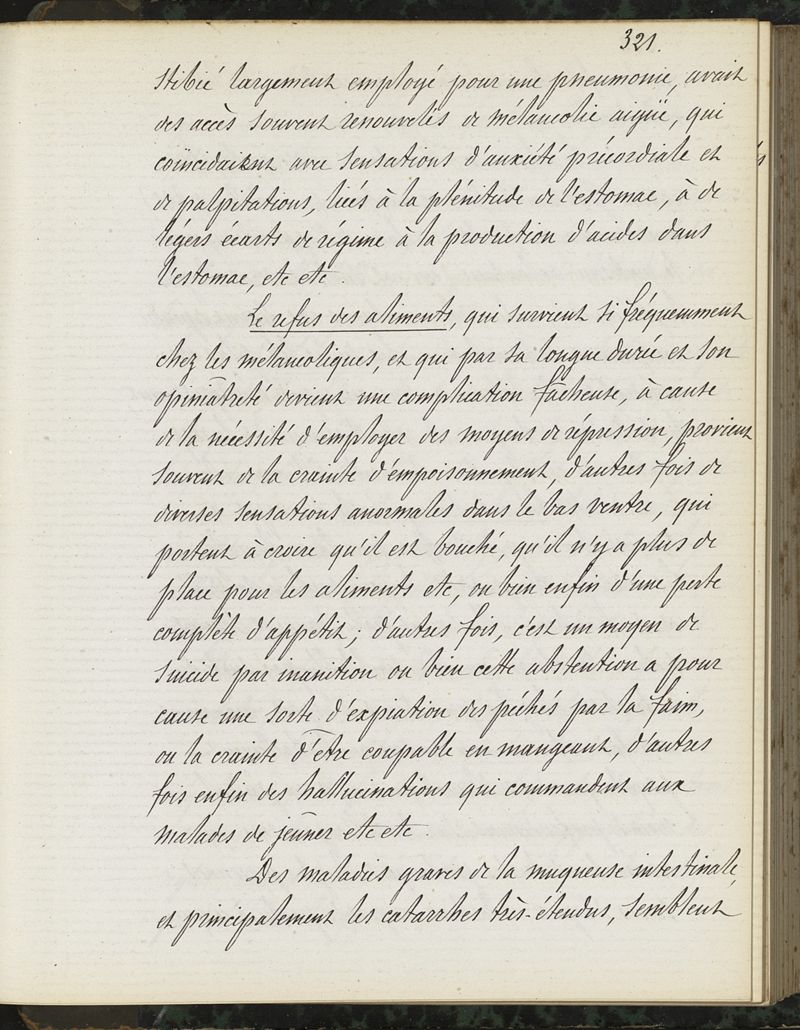 321.
stibié largement employé pour une pneumonie, avait
des accès souvent renouvelés de mélancolie aigüe, qui
coïncidaient avec sensations d'anxiété précordiale et
de palpitations, liées à la plénitude de l'estomac, à de
légers écarts de régime à la production d'acides dans
l'estomac, etc etc.
Le refus des aliments, qui survient si fréquemment
chez les mélancoliques, et qui par sa longue durée et son
opiniâtreté devient une complication fâcheuse, à cause
de la nécessité d'employer des moyens de répression, provient
souvent de la crainte d'empoisonnement, d'autres fois de
diverses sensations anormales dans le bas ventre, qui
portent à croire qu'il est bouché, qu'il n'y a plus de
place pour les aliments etc, ou bien enfin d'une perte
complète d'appétit; d'autres fois, c'est un moyen de
suicide par inanition ou bien cette abstention a pour
cause une sorte d'expiation des péchés par la faim,
ou la crainte d'être coupable en mangeant, d'autres
fois enfin des hallucinations qui commandent aux
malades de jeûner etc etc.
Des maladies graves de la muqueuse intestinale,
et principalement les catarrhes très-étendus, semblent